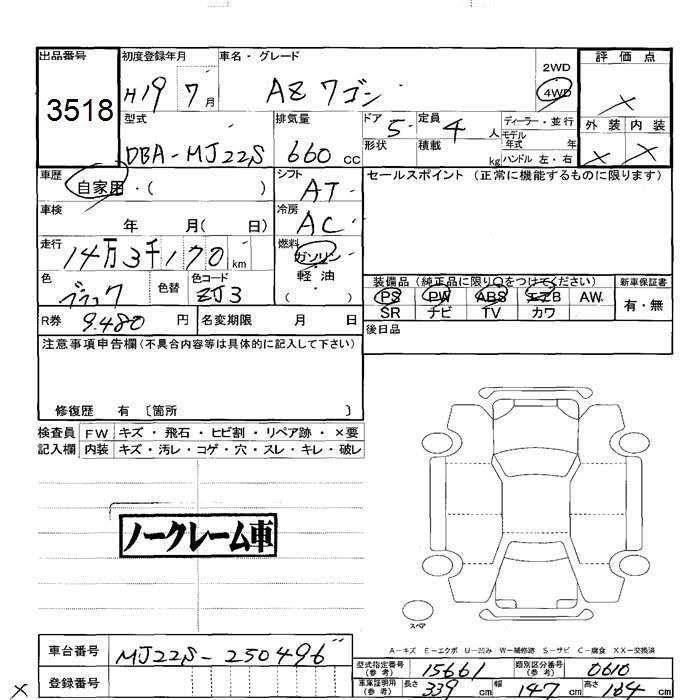 出品番号 初度登録年月 車名・グレード 2WD 評価点
3518 H19 7月 AZワゴン 4WD ×
型式 排気量 ドア 5 定員 4人 ディーラー・並行 外装 内装
DBA-MJ22S 660cc 形状 積載 kg モデル年式 年 × ×
ハンドル 左・右
車歴 自家用・( ) シフト AT セールスポイント (正常に機能するものに限ります)
車検 年 月( 日) 冷房 AC
走行 14万3千170km 燃料 ガソリン
軽油
( )
色 ブラック 色替 色コード ZJ3 装備品 (純正品に限り○をつけてください) 新車保証書
PS PW ABS エアB AW 有・無
SR ナビ TV カワ
R券 9.480円 名変期限 月 日 後日品
注意事項申告欄(不具合内容等は具体的に記入して下さい)
修復歴 有 [箇所 ]
検査員 FW キズ・飛石・ヒビ割・リペア跡・×要
記入欄 内装 キズ・汚レ・コゲ・穴・スレ・キレ・破レ
ノークレーム車
スペア
A-キズ E-エクボ U-凹み W-補修跡 S-サビ C-腐食 XX-交換済
車台番号 MJ22S-250496
型式指定番号(参考) 15661 類別区分番号(参考) 0610
登録番号 車庫証明用(参考) 長さ 339cm 幅 147cm 高さ 164cm
×